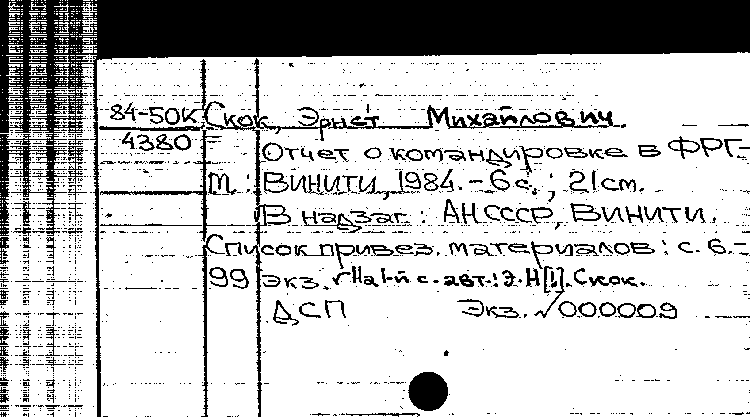 84-50К Скок, Эрнст Михайлович.
4380 = Отчет о командировке в ФРГ.-
М.: ВИНИТИ, 1984.-6 с.; 21 см.
В надзаг.: АН СССР, ВИНИТИ.
Список привез. материалов: с. 6.-
99 экз. На 1-й с. авт.: Э.Н[!]. Скок.
ДСП Экз. √000009